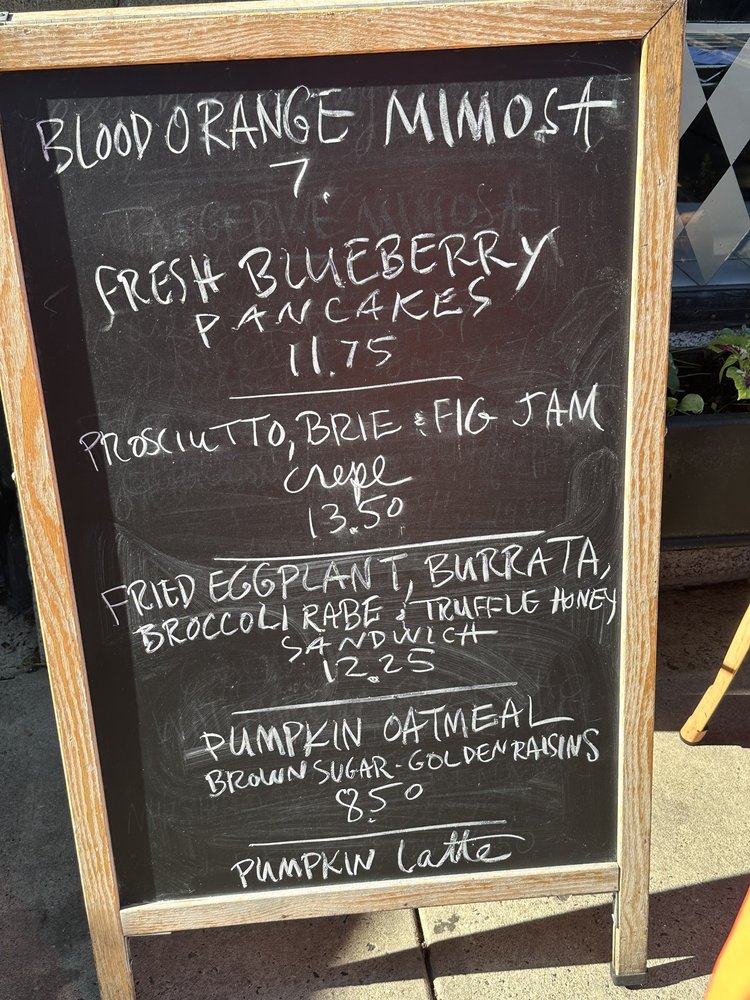 BLOOD ORANGE MIMOSA
7.
FRESH BLUEBERRY
PANCAKES
11.75
PROSCIUTTO, BRIE & FIG JAM
crepe
13.50
FRIED EGGPLANT, BURRATA,
BROCCOLI RABE & TRUFFLE HONEY
SANDWICH
12.25
PUMPKIN OATMEAL
BROWN SUGAR - GOLDEN RAISINS
8.50
PUMPKIN Latte